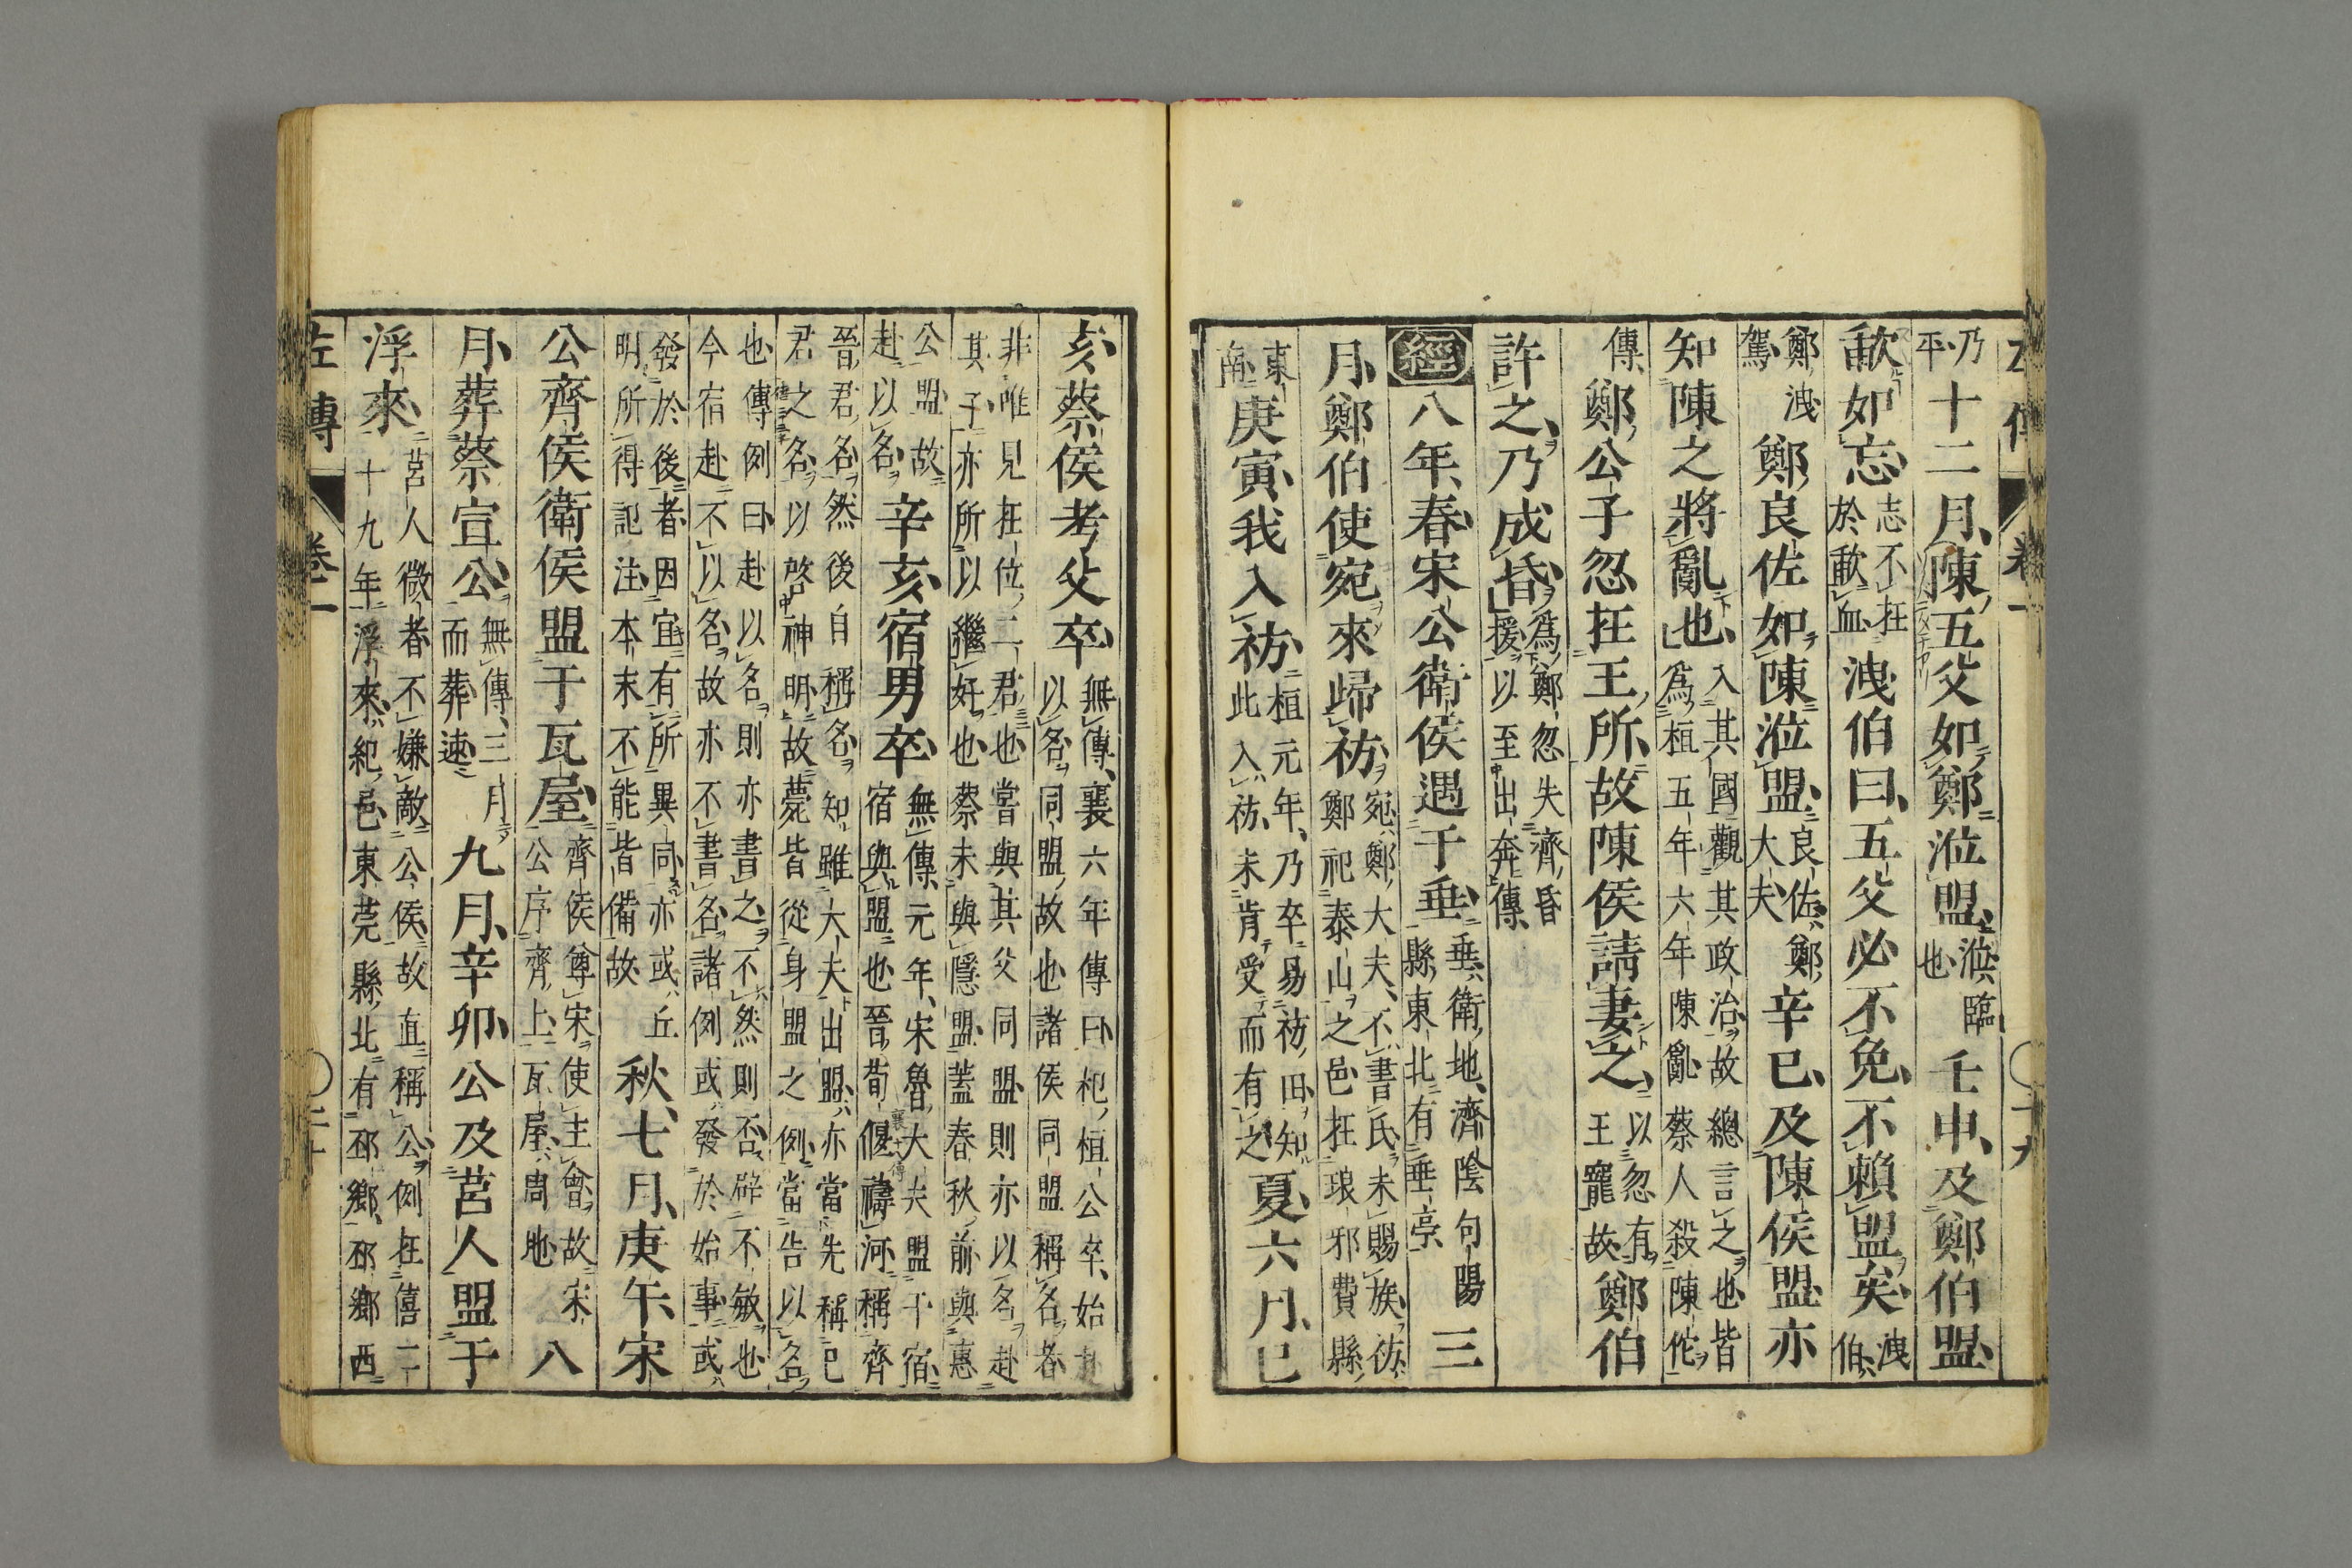 左傳 卷一 〇十九
乃平十二月陳五父如鄭涖盟涖臨也壬申及鄭伯盟
歃如忘志不在於歃血洩伯曰五父必不免不賴盟矣洩伯
鄭洩駕鄭良佐如陳涖盟良佐鄭大夫辛巳及陳侯盟亦
知陳之將亂也入其國觀其政治故總言之也皆爲桓五年六年陳亂蔡人殺陳佗
傳鄭公子忽在王所故陳侯請妻之以忽有王寵故鄭伯
許之乃成昏爲鄭忽失齊昏援以至出奔傳
經八年春宋公衛侯遇于垂垂衛地濟陰句陽縣東北有垂亭三
月鄭伯使宛來歸祊宛鄭大夫不書氏未賜族祊鄭祀泰山之邑在琅邪費縣
東南庚寅我入祊桓元年乃卒易祊田知此入祊未肯受而有之夏六月己
亥蔡侯考父卒無傳襄六年傳曰杞桓公卒始赴以名同盟故也諸侯同盟稱名者
非唯見在位二君也嘗與其父同盟則亦以名赴其子亦所以繼好也蔡未與隱盟蓋春秋前與惠
公盟故赴以名辛亥宿男卒無傳元年宋魯大夫盟于宿宿與盟也晉荀偃禱河稱齊
晉君名然後自稱名知雖大夫出盟亦當先稱己君之名以啓神明故薨皆從身盟之例當告以名
也傳例曰赴以名則亦書之不然則否辟不敏也今宿赴不以名故亦不書名諸例或發於始事或
發於後者因宜有所異同亦或丘明所得記注本末不能皆備故秋七月庚午宋
公齊侯衛侯盟于瓦屋齊侯尊宋使主會故宋公序齊上瓦屋周地八
月葬蔡宣公無傳三月而葬速九月辛卯公及莒人盟于
浮來莒人微者不嫌敵公侯故直稱公例在僖二十九年浮來紀邑東莞縣北有邳鄉邳鄉西
左傳 卷一 〇二十